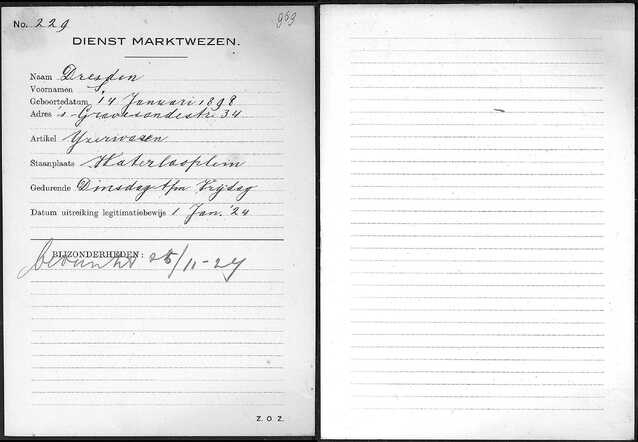 No. 229
969
DIENST MARKTWEZEN.
Naam Dresden
Voornamen J
Geboortedatum 14 Januari 1898
Adres 's-Gravesandestr 34
Artikel Yzerwaren
Staanplaats Waterlooplein
Gedurende Dinsdag t/m Vrijdag
Datum uitreiking legitimatiebewijs 1 Jan. '24
BIJZONDERHEDEN:
25/11-27
Z. O. Z.